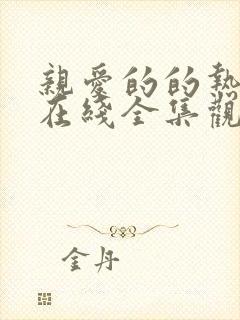 親愛的的熱
在綫全集觀
金丹